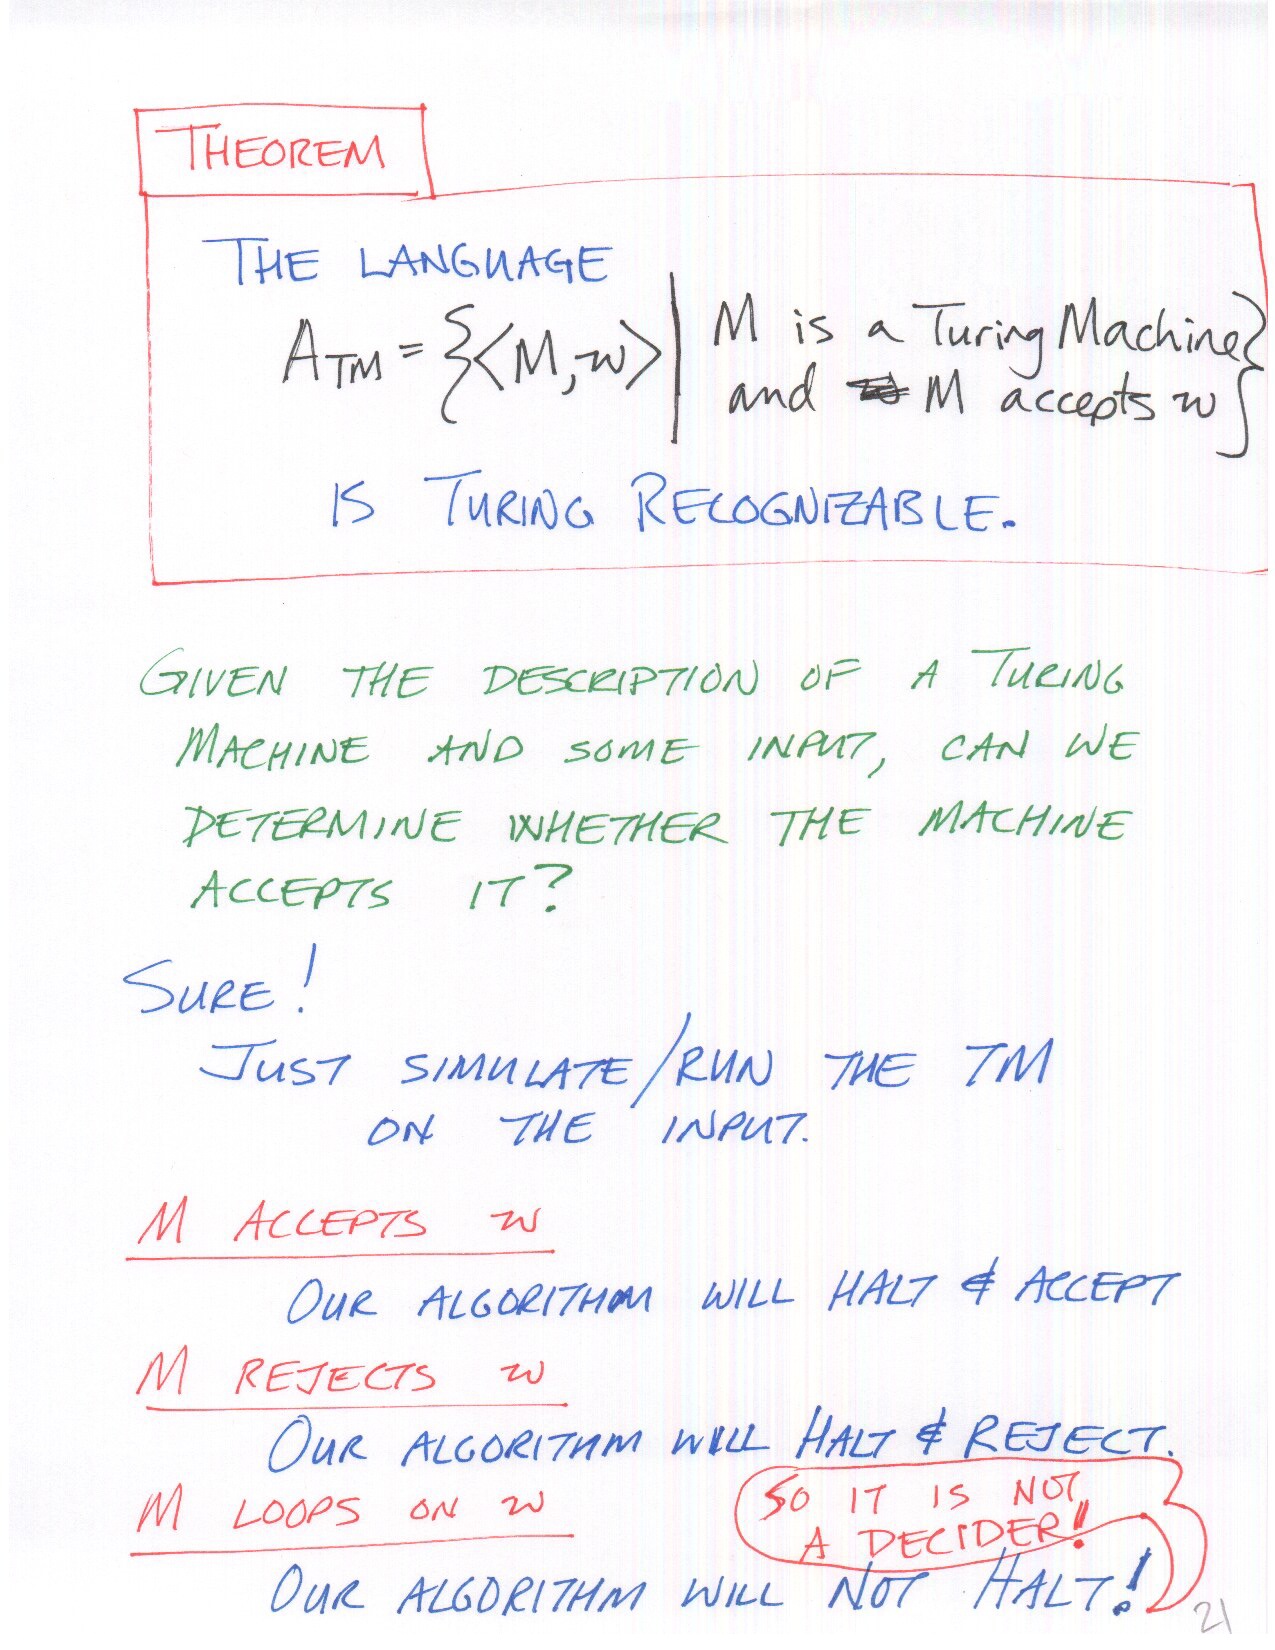 THEOREM
THE LANGUAGE
A_TM = {<M, w> | M is a Turing Machine
and M accepts w}
IS TURING RECOGNIZABLE.
GIVEN THE DESCRIPTION OF A TURING
MACHINE AND SOME INPUT, CAN WE
DETERMINE WHETHER THE MACHINE
ACCEPTS IT?
SURE!
JUST SIMULATE/RUN THE TM
ON THE INPUT.
M ACCEPTS w
OUR ALGORITHM WILL HALT & ACCEPT
M REJECTS w
OUR ALGORITHM WILL HALT & REJECT.
M LOOPS ON w
SO IT IS NOT
A DECIDER!
OUR ALGORITHM WILL NOT HALT!
21